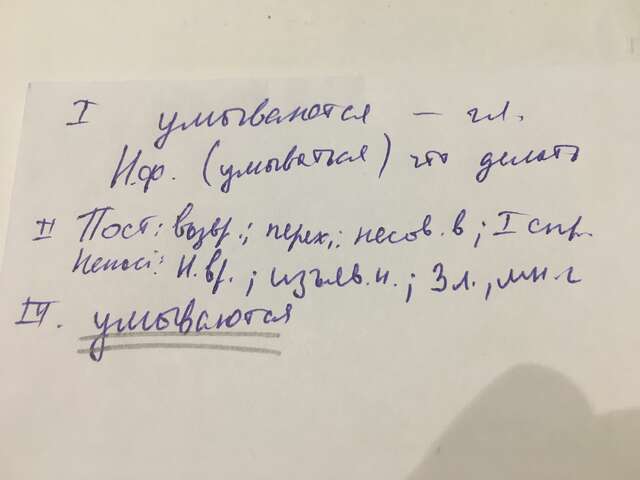 I умываются – гл.
Н.ф. (умываться) что делать
II Пост: возвр.; перех,; несов. в; I спр.
Непост: н. вр.; изъяв. н.; 3 л., мн. г
III. умываются